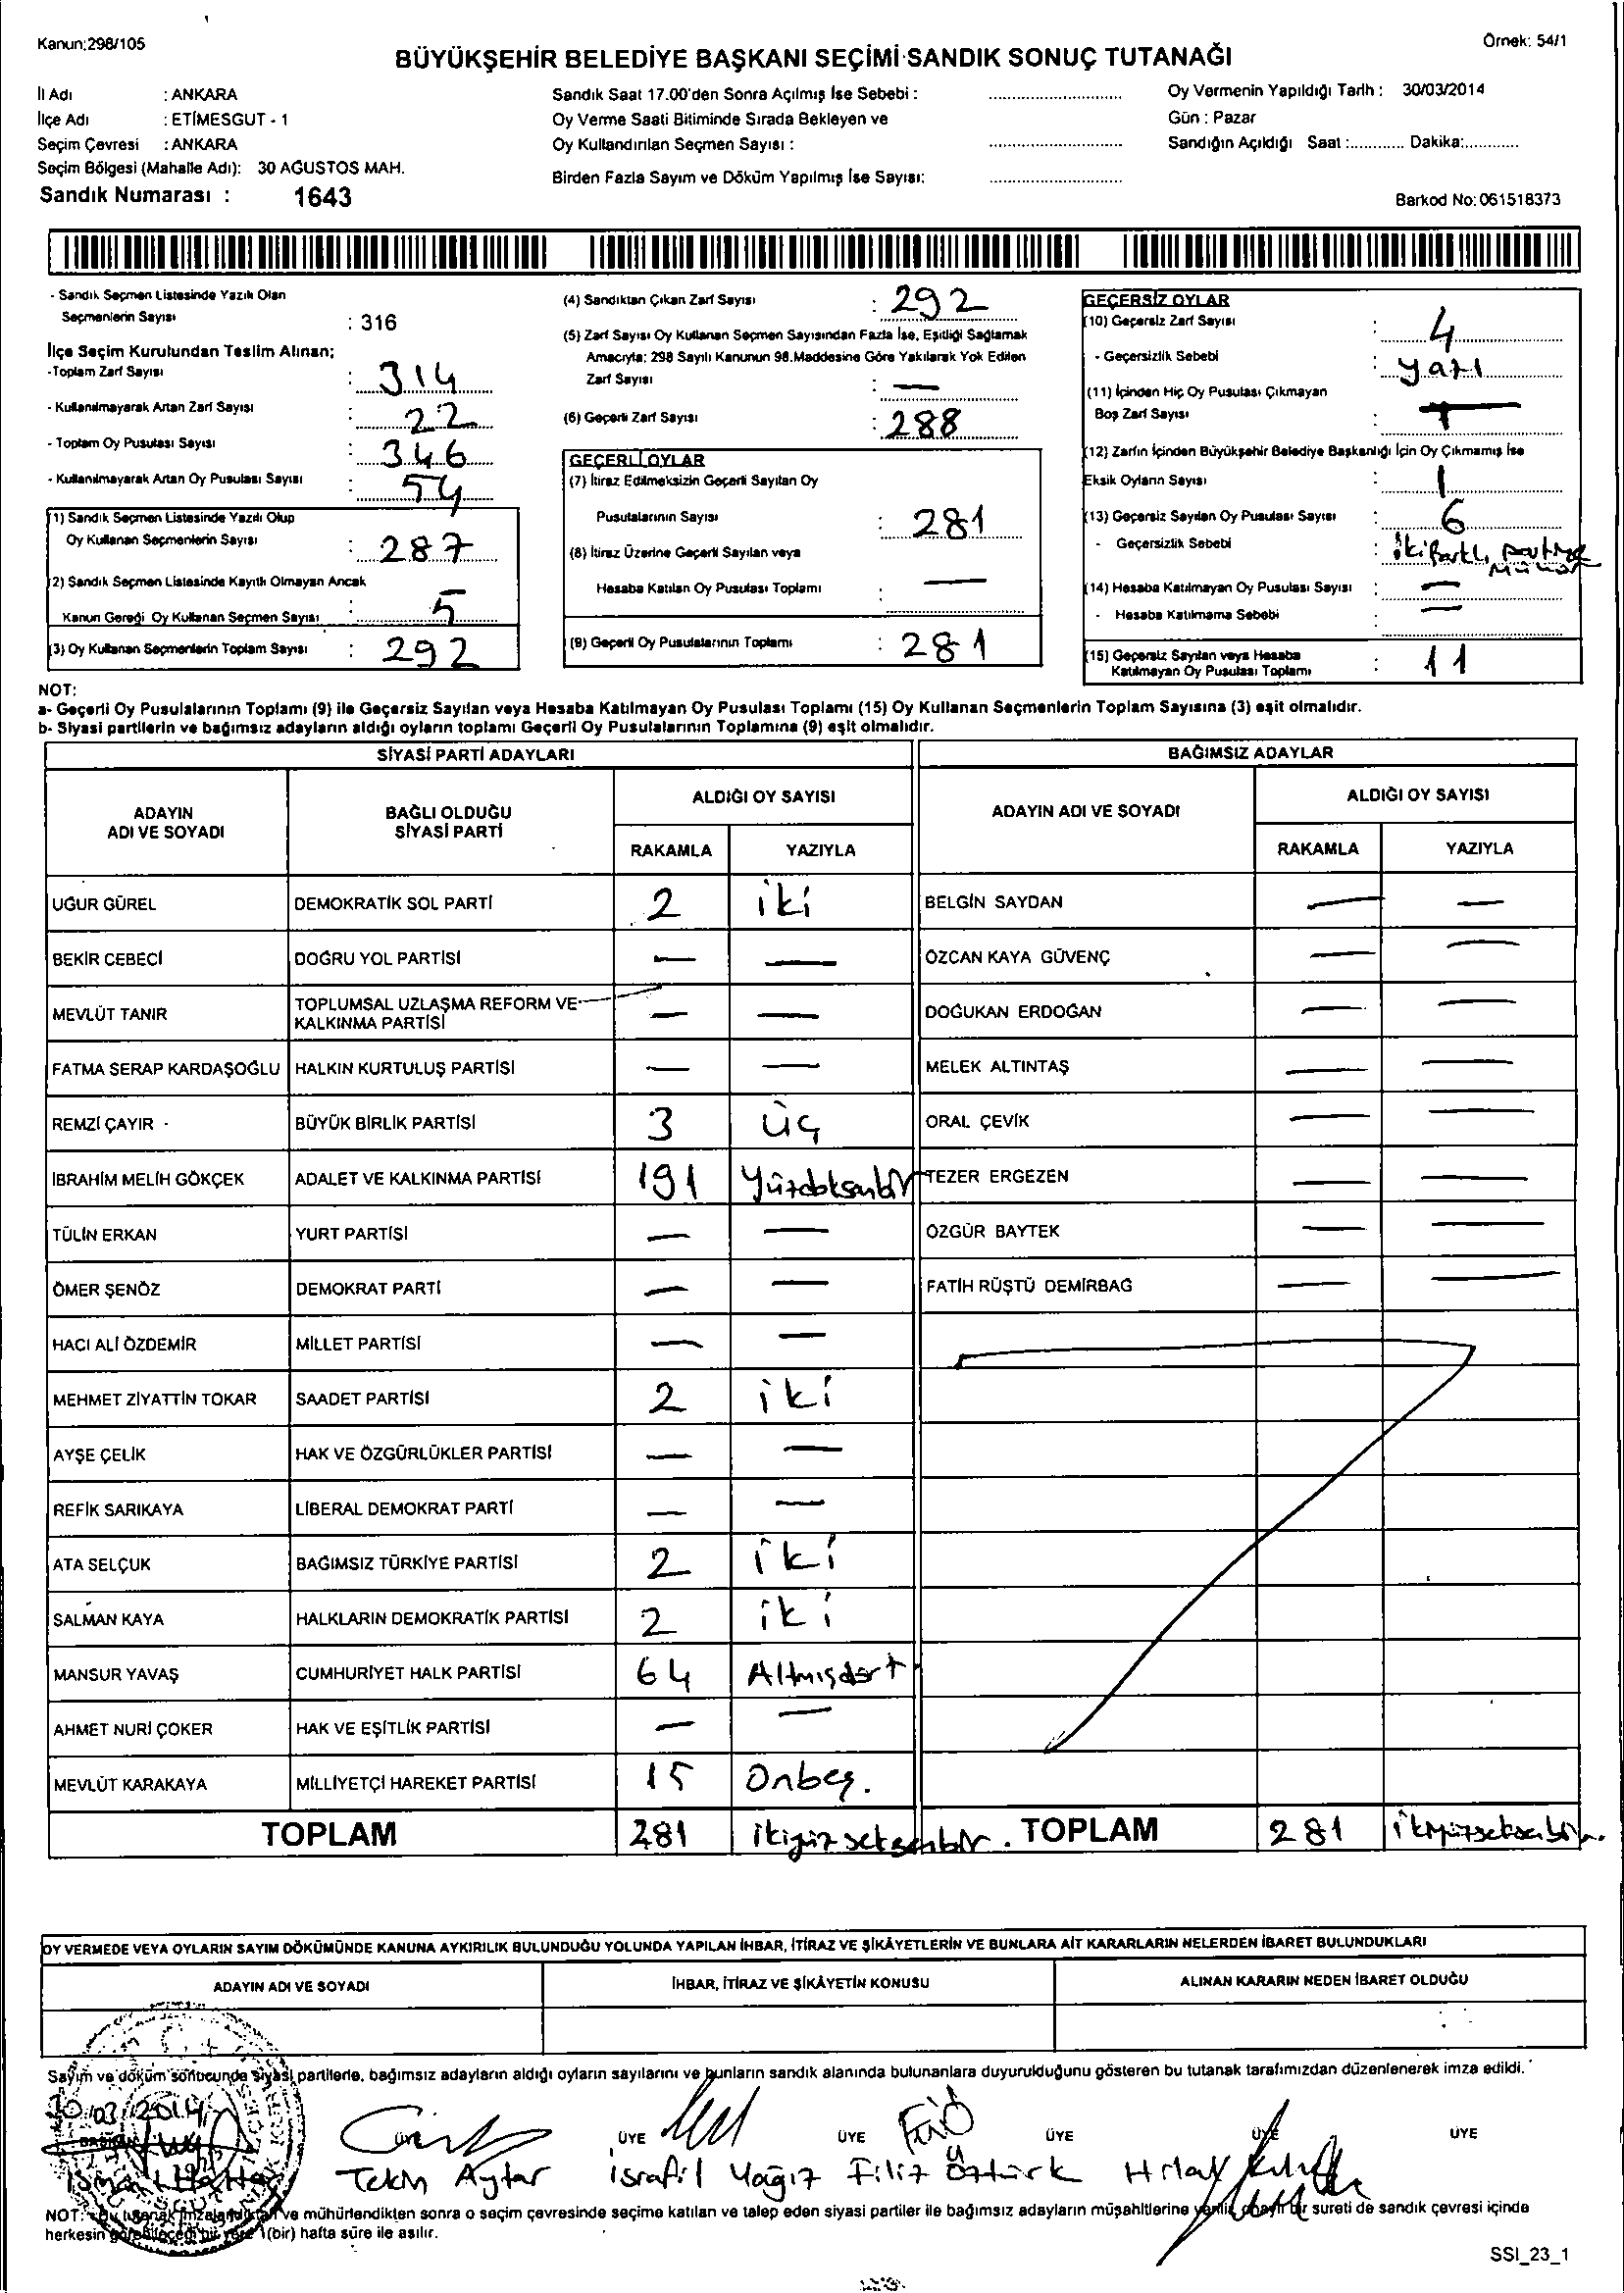 Kanun:298/105
Örnek: 54/1
BÜYÜKŞEHİR BELEDİYE BAŞKANI SEÇİMİ SANDIK SONUÇ TUTANAĞI
İl Adı : ANKARA
İlçe Adı : ETİMESGUT - 1
Seçim Çevresi : ANKARA
Seçim Bölgesi (Mahalle Adı): 30 AĞUSTOS MAH.
Sandık Numarası : 1643
Sandık Saat 17.00'den Sonra Açılmış İse Sebebi :
Oy Verme Saati Bitiminde Sırada Bekleyen ve
Oy Kullandırılan Seçmen Sayısı :
Birden Fazla Sayım ve Döküm Yapılmış İse Sayısı:
Oy Vermenin Yapıldığı Tarih : 30/03/2014
Gün : Pazar
Sandığın Açıldığı Saat :............ Dakika:............
Barkod No:061518373
- Sandık Seçmen Listesinde Yazılı Olan
Seçmenlerin Sayısı : 316
İlçe Seçim Kurulundan Teslim Alınan;
-Toplam Zarf Sayısı : 314
- Kullanılmayarak Artan Zarf Sayısı : 22
- Toplam Oy Pusulası Sayısı : 346
- Kullanılmayarak Artan Oy Pusulası Sayısı : 54
(1) Sandık Seçmen Listesinde Yazılı Olup
Oy Kullanan Seçmenlerin Sayısı : 287
(2) Sandık Seçmen Listesinde Kayıtlı Olmayan Ancak
Kanun Gereği Oy Kullanan Seçmen Sayısı : 5
(3) Oy Kullanan Seçmenlerin Toplam Sayısı : 292
(4) Sandıktan Çıkan Zarf Sayısı : 292
(5) Zarf Sayısı Oy Kullanan Seçmen Sayısından Fazla İse, Eşitliği Sağlamak
Amacıyla; 298 Sayılı Kanunun 98.Maddesine Göre Yakılarak Yok Edilen
Zarf Sayısı : —
(6) Geçerli Zarf Sayısı : 288
GEÇERLİ OYLAR
(7) İtiraz Edilmeksizin Geçerli Sayılan Oy
Pusulalarının Sayısı : 281
(8) İtiraz Üzerine Geçerli Sayılan veya
Hesaba Katılan Oy Pusulası Toplamı : —
(9) Geçerli Oy Pusulalarının Toplamı : 281
GEÇERSİZ OYLAR
(10) Geçersiz Zarf Sayısı : 4
- Geçersizlik Sebebi : yazı
(11) İçinden Hiç Oy Pusulası Çıkmayan
Boş Zarf Sayısı :
(12) Zarfın İçinden Büyükşehir Belediye Başkanlığı İçin Oy Çıkmamış İse
Eksik Oyların Sayısı : 1
(13) Geçersiz Sayılan Oy Pusulası Sayısı : 6
- Geçersizlik Sebebi : iki
(14) Hesaba Katılmayan Oy Pusulası Sayısı : —
- Hesaba Katılmama Sebebi : —
(15) Geçersiz Sayılan veya Hesaba
Katılmayan Oy Pusulası Toplamı : 11
NOT:
a- Geçerli Oy Pusulalarının Toplamı (9) ile Geçersiz Sayılan veya Hesaba Katılmayan Oy Pusulası Toplamı (15) Oy Kullanan Seçmenlerin Toplam Sayısına (3) eşit olmalıdır.
b- Siyasi partilerin ve bağımsız adayların aldığı oyların toplamı Geçerli Oy Pusulalarının Toplamına (9) eşit olmalıdır.
SİYASİ PARTİ ADAYLARI BAĞIMSIZ ADAYLAR
ADAYIN ADI VE SOYADI BAĞLI OLDUĞU SİYASİ PARTİ ALDIĞI OY SAYISI ADAYIN ADI VE SOYADI ALDIĞI OY SAYISI
RAKAMLA YAZIYLA RAKAMLA YAZIYLA
UĞUR GÜREL DEMOKRATİK SOL PARTİ 2 iki BELGİN SAYDAN — —
BEKİR CEBECİ DOĞRU YOL PARTİSİ — — ÖZCAN KAYA GÜVENÇ — —
MEVLÜT TANIR TOPLUMSAL UZLAŞMA REFORM VE KALKINMA PARTİSİ — — DOĞUKAN ERDOĞAN — —
FATMA SERAP KARDAŞOĞLU HALKIN KURTULUŞ PARTİSİ — — MELEK ALTINTAŞ — —
REMZİ ÇAYIR - BÜYÜK BİRLİK PARTİSİ 3 üç ORAL ÇEVİK — —
İBRAHİM MELİH GÖKÇEK ADALET VE KALKINMA PARTİSİ 191 Yüzdoksanbir TEZER ERGEZEN — —
TÜLİN ERKAN YURT PARTİSİ — — ÖZGÜR BAYTEK — —
ÖMER ŞENÖZ DEMOKRAT PARTİ — — FATİH RÜŞTÜ DEMİRBAĞ — —
HACI ALİ ÖZDEMİR MİLLET PARTİSİ — —
MEHMET ZİYATTİN TOKAR SAADET PARTİSİ 2 iki
AYŞE ÇELİK HAK VE ÖZGÜRLÜKLER PARTİSİ — —
REFİK SARIKAYA LİBERAL DEMOKRAT PARTİ — —
ATA SELÇUK BAĞIMSIZ TÜRKİYE PARTİSİ 2 iki
SALMAN KAYA HALKLARIN DEMOKRATİK PARTİSİ 2 iki
MANSUR YAVAŞ CUMHURİYET HALK PARTİSİ 64 Altmışdört
AHMET NURİ ÇOKER HAK VE EŞİTLİK PARTİSİ — —
MEVLÜT KARAKAYA MİLLİYETÇİ HAREKET PARTİSİ 15 Onbeş.
TOPLAM 281 ikiyüzseksenbir. TOPLAM 281 ikiyüzseksenbir.
OY VERMEDE VEYA OYLARIN SAYIM DÖKÜMÜNDE KANUNA AYKIRILIK BULUNDUĞU YOLUNDA YAPILAN İHBAR, İTİRAZ VE ŞİKÂYETLERİN VE BUNLARA AİT KARARLARIN NELERDEN İBARET BULUNDUKLARI
ADAYIN ADI VE SOYADI İHBAR, İTİRAZ VE ŞİKÂYETİN KONUSU ALINAN KARARIN NEDEN İBARET OLDUĞU
Sayım ve döküm sonucunda siyasi partilerle, bağımsız adayların aldığı oyların sayılarını ve bunların sandık alanında bulunanlara duyurulduğunu gösteren bu tutanak tarafımızdan düzenlenerek imza edildi.
30/03/2014
BAŞKAN ÜYE ÜYE ÜYE ÜYE ÜYE ÜYE
Tekin Aytar israfil Yağız Filiz Öztürk
NOT: Bu tutanak imzalandıktan ve mühürlendikten sonra o seçim çevresinde seçime katılan ve talep eden siyasi partiler ile bağımsız adayların müşahitlerine verilir, onaylı bir sureti de sandık çevresi içinde
herkesin görebileceği bir yere 1(bir) hafta süre ile asılır.
SSI_23_1